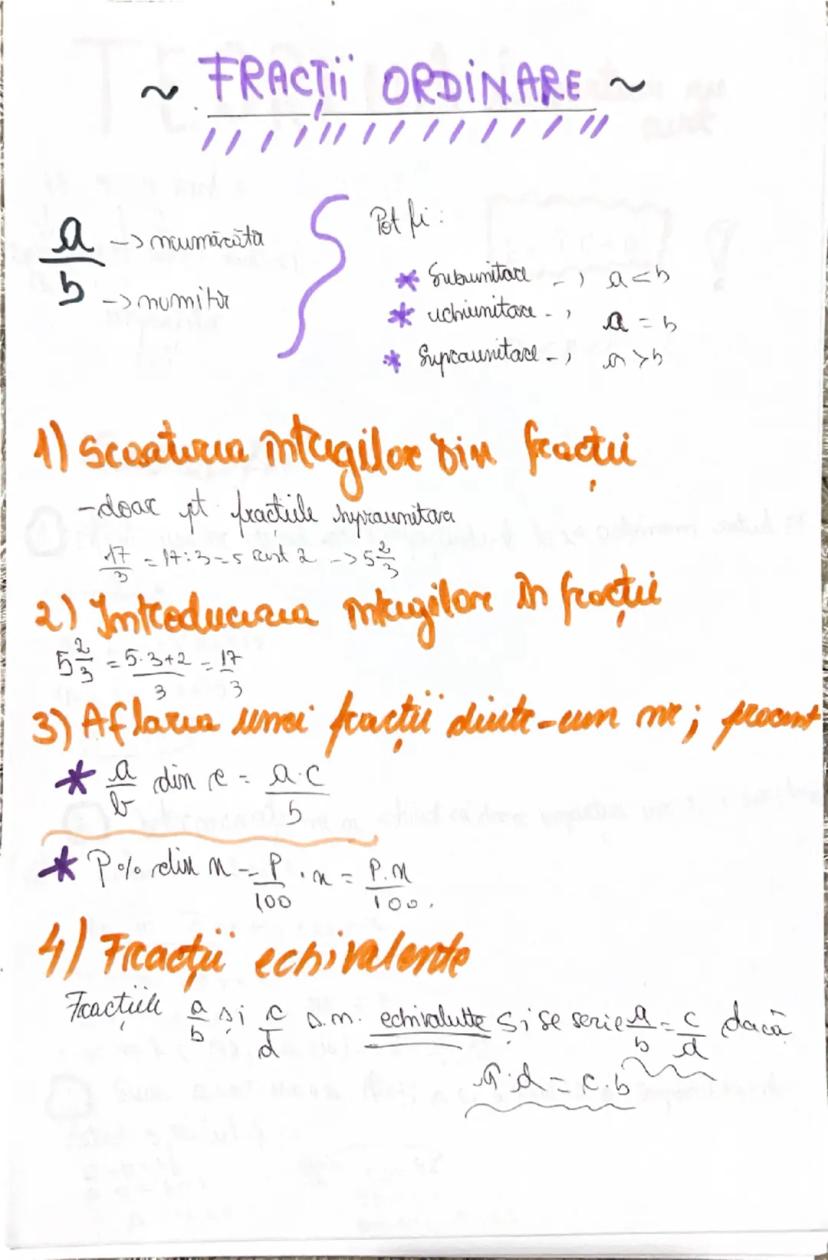 ~ FRACȚII ORDINARE ~
a/b -> numărător
-> numitor
Pot fi:
* Subunitare -, a < b
* echiunitare -, a = b
* Supraunitare -, a > b
1) Scoaterea întregilor din fracții
- doar pt fracțiile supraunitare
17/3 = 17:3 = 5 rest 2 -> 5 2/3
2) Introducerea întregilor în fracții
5 2/3 = 5·3+2/3 = 17/3
3) Aflarea unei fracții dintr-un nr; procent
* a/b din c = a·c/b
* P% din n = P/100 · n = P·n/100.
4) Fracții echivalente
Fracțiile a/b și c/d s.n. echivalente și se scrie a/b = c/d dacă
a·d = c·b